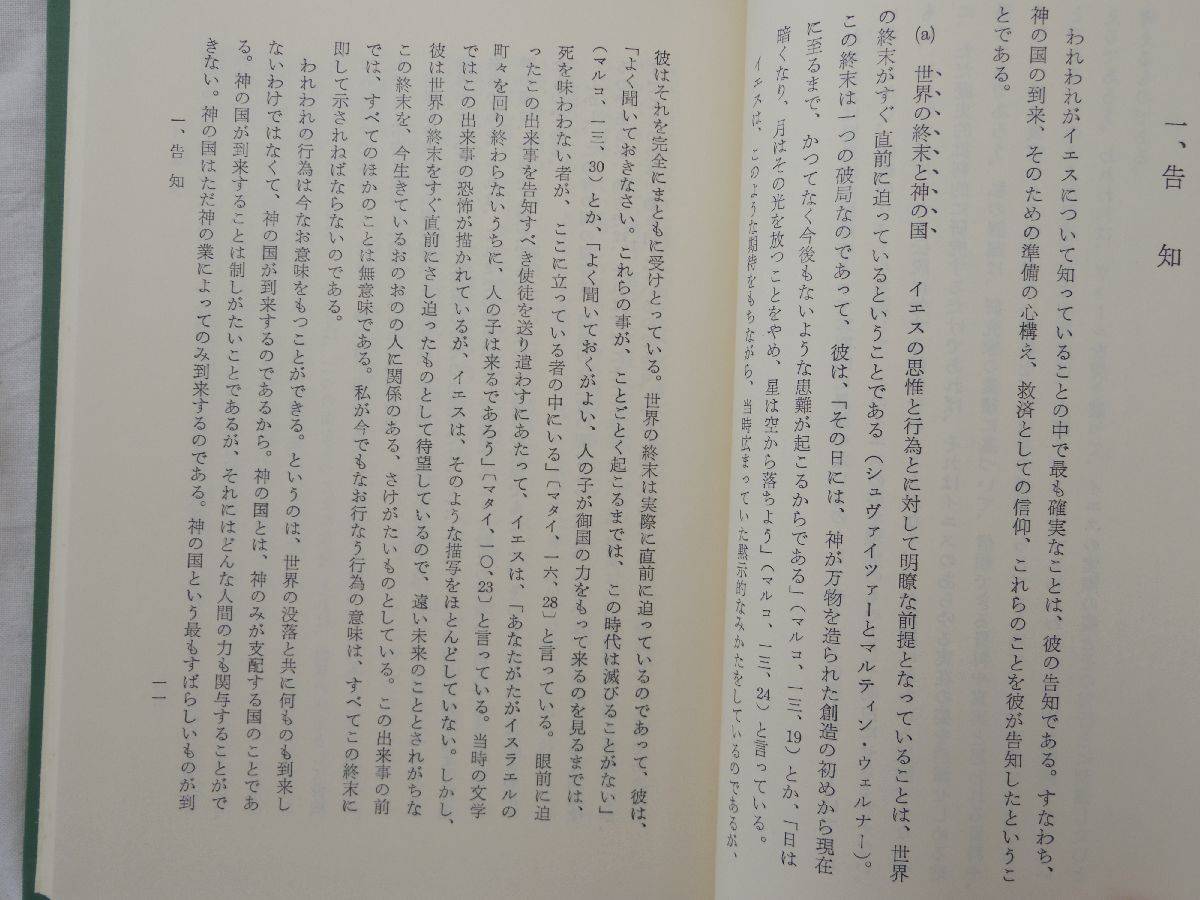 一、告　知
われわれがイエスについて知っていることの中で最も確実なことは、彼の告知である。すなわち、
神の国の到来、そのための準備の心構え、救済としての信仰、これらのことを彼が告知したというこ
とである。
(a)　世界の終末と神の国　イエスの思惟と行為とに対して明瞭な前提となっていることは、世界
の終末がすぐ直前に迫っているということである（シュヴァイツァーとマルティン・ウェルナー）。
この終末は一つの破局なのであって、彼は、「その日には、神が万物を造られた創造の初めから現在
に至るまで、かつてなく今後もないような患難が起こるからである」（マルコ、一三、19）とか、「日は
暗くなり、月はその光を放つことをやめ、星は空から落ちよう」（マルコ、一三、24）と言っている。
イエスは、このような期待をもちながら、当時広まっていた黙示的なみかたをしているのであるが、
彼はそれを完全にまともに受けとっている。世界の終末は実際に直前に迫っているのであって、彼は、
「よく聞いておきなさい。これらの事が、ことごとく起こるまでは、この時代は滅びることがない」
（マルコ、一三、30）とか、「よく聞いておくがよい、人の子が御国の力をもって来るのを見るまでは、
死を味わわない者が、ここに立っている者の中にいる」〔マタイ、一六、28〕と言っている。眼前に迫
ったこの出来事を告知すべき使徒を送り遣わすにあたって、イエスは、「あなたがたがイスラエルの
町々を回り終わらないうちに、人の子は来るであろう」〔マタイ、一〇、23〕と言っている。当時の文学
ではこの出来事の恐怖が描かれているが、イエスは、そのような描写をほとんどしていない。しかし、
彼は世界の終末をすぐ直前にさし迫ったものとして待望しているので、遠い未来のこととされがちな
この終末を、今生きているおのおのの人に関係のある、さけがたいものとしている。この出来事の前
では、すべてのほかのことは無意味である。私が今でもなお行なう行為の意味は、すべてこの終末に
即して示されねばならないのである。
われわれの行為は今なお意味をもつことができる。というのは、世界の没落と共に何ものも到来し
ないわけではなくて、神の国が到来するのであるから。神の国とは、神のみが支配する国のことであ
る。神の国が到来することは制しがたいことであるが、それにはどんな人間の力も関与することがで
きない。神の国はただ神の業によってのみ到来するのである。神の国という最もすばらしいものが到
一、告　知
一一